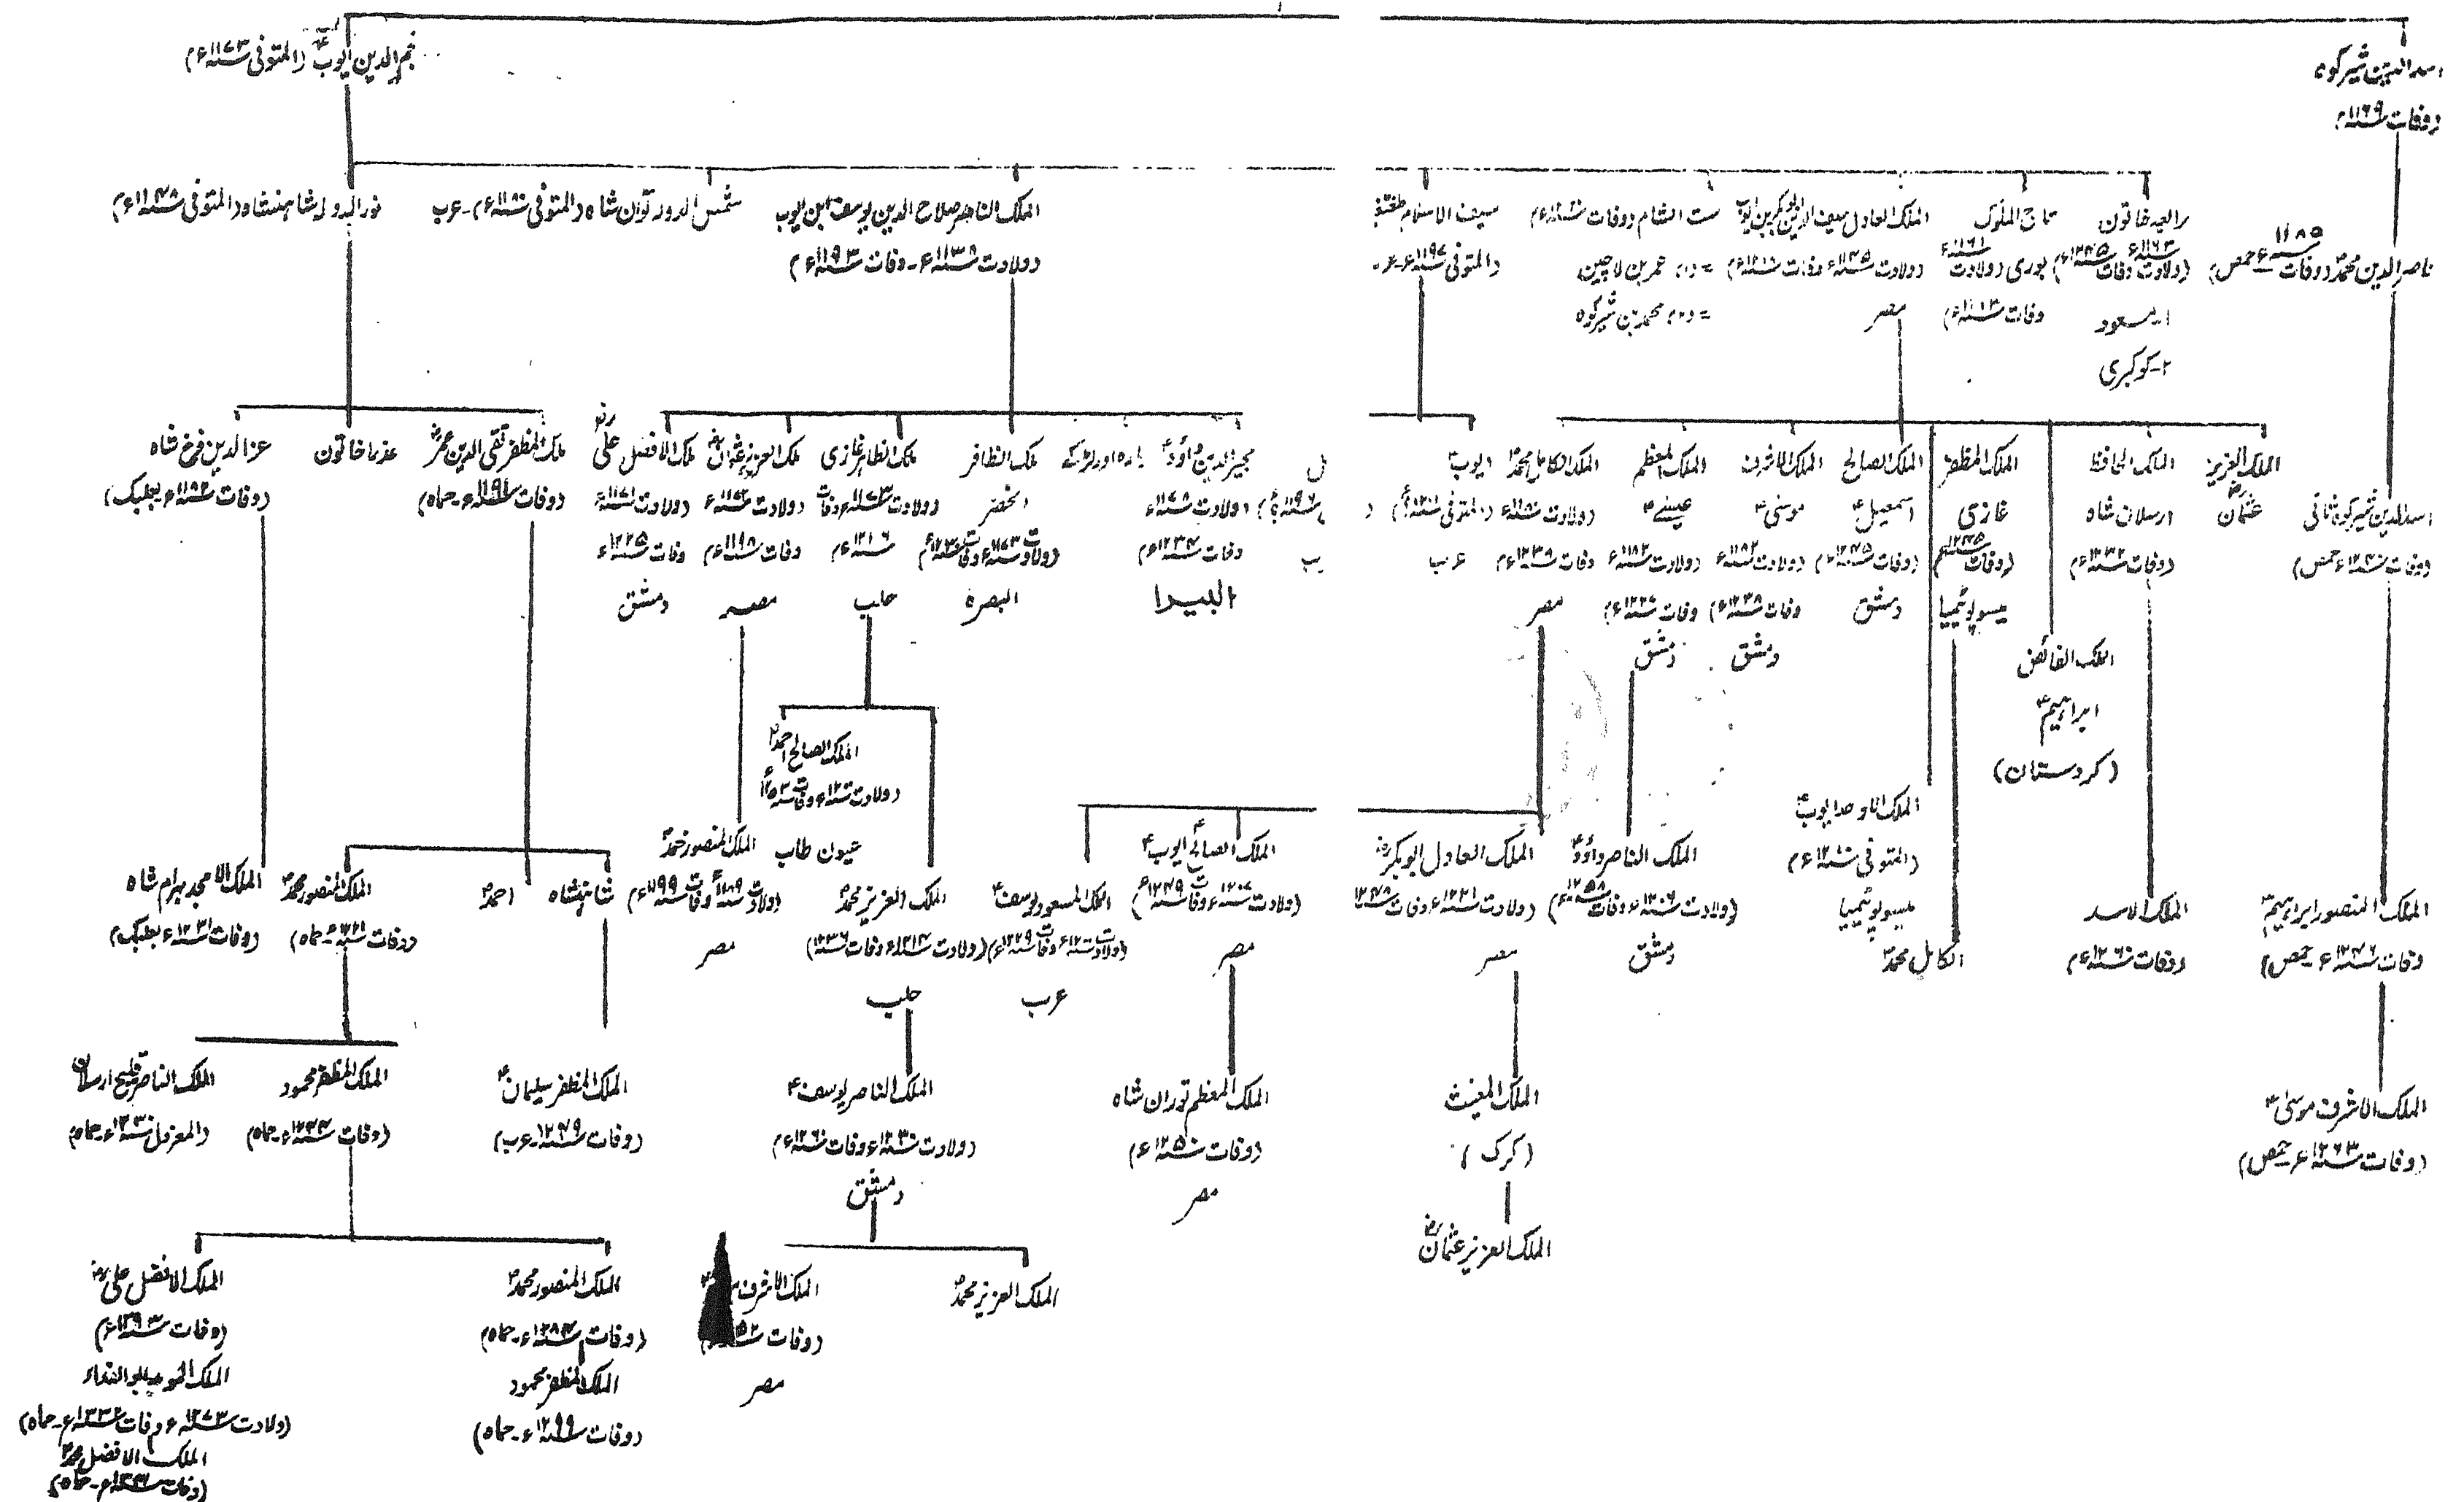 اسد الدین شیرکوہ
(وفات ۱۱۶۹ء)
نجم الدین ایوبؒ (المتوفی ۱۱۷۳ء)
رابعہ خاتون
(ولادت ۱۱۶۳ء وفات ۱۲۴۵ء)
۱۔ مسعود
۲۔ کوکبری
تاج الملوک
بوری (ولادت ۱۱۶۱ء
الملک العادل سیف الدین ابوبکر بن ایوب
ولادت ۱۱۴۵ء وفات ۱۲۱۸ء)
مصر
ست الشام (وفات
= (۱) عمر بن لاجین
= (۲) محمد بن شیرکوہ
سیف الاسلام طغتگ
(المتوفی ۱۱۹۷ء۔ع۔
الملک الناصر صلاح الدین یوسف ابن ایوب
(ولادت ۱۱۳۸ء۔ وفات ۱۱۹۳ء)
شمس الدولہ توران شاہ (المتوفی ۱۱۸۰ء)۔ عرب
نور الدولہ شاہنشاہ (المتوفی ۱۱۴۸ء)
۱۱۸۵
ناصر الدین محمدؒ (وفات ــــــ ء حمص)
اسد الدین شیرکوہ ثانی
(وفات ۱۲۴۰ء حمص)
الملک العزیز
عثمانؓ
الملک الحافظ
ارسلان شاہ
(وفات
الملک المظفر
غازی
(وفات ۱۲۴۵ء)
میسوپوٹیمیا
الملک الصالح
اسمعیلؑ
(وفات ۱۲۴۵ء)
دمشق
الملک الاشرف
موسیٰؑ
(ولادت ۱۱۸۲ء
وفات
دمشق
الملک المعظم
عیسیٰؑ
(ولادت
وفات
دمشق
الملک الکامل محمدؐ
(ولادت ۱۱۸۰ء
وفات ۱۲۳۸ء)
مصر
ایوبؑ
(المتوفی
عرب
ل
ب
مجیر الدین داؤدؑ
(ولادت ۱۱۷۸ء
وفات
البیرا
بارہ اور لڑکے
ملک الظافر
الخضر
(ولادت ۱۱۷۳ء وفات
البصرہ
ملک الظاہر غازی
(ولادت ۱۱۷۳ء وفات
۱۲۱۶ء)
حلب
ملک العزیز عثمانؓ
(ولادت ۱۱۷۲ء
وفات ۱۱۹۸ء)
مصر
ملک الافضل علیؓ
(ولادت ۱۱۷۱ء
وفات ۱۲۲۵ء
دمشق
ملک المظفر تقی الدین عمرؓ
(وفات ۱۱۹۱ء۔ حماہ)
عذرا خاتون
عز الدین فرخ شاہ
(وفات ۱۱۸۲ء۔ بعلبک)
الملک الفائض
ابراہیمؑ
(کردستان)
الملک الصالح احمدؐ
عیون طاب
الملک الاوحد ایوبؑ
(المتوفی
میسوپوٹیمیا
الملک المنصور ابراہیمؑ
وفات ۱۲۴۶ء۔ حمص)
الملک الاسد
(وفات ۱۲۶۰ء)
الکامل محمدؐ
الملک الناصر داؤدؑ
(ولادت ۱۲۰۶ء وفات ۱۲۵۸ء)
دمشق
الملک العادل ابوبکرؓ
(ولادت ۱۲۲۱ء وفات ۱۲۴۸
مصر
الملک الصالح ایوبؑ
(ولادت ۱۲۰۷ء وفات ۱۲۴۹ء)
مصر
الملک المسعود یوسفؑ
عرب
الملک العزیز محمدؐ
(ولادت ۱۲۱۴ء وفات ۱۲۳۶)
حلب
الملک المنصور محمدؐ
(ولادت ۱۱۸۹ء وفات ۱۱۹۹ء)
مصر
شاہنشاہ
احمدؐ
الملک المنصور محمدؐ
(وفات ۱۲۲۱ء۔ حماہ)
الملک الامجد بہرام شاہ
(وفات ۱۲۳۱ء بعلبک)
الملک الاشرف موسیٰؑ
(وفات ۱۲۶۳ء۔ حمص)
الملک المغیث
(کرک)
الملک المعظم توران شاہ
(وفات ۱۲۵۰ء)
مصر
الملک الناصر یوسفؑ
(ولادت ۱۲۳۰ء وفات ۱۲۶۰ء)
دمشق
الملک المظفر سلیمانؑ
الملک المظفر محمود
(وفات ۱۲۴۴ء۔ حماہ)
الملک الناصر قلیج ارسلان
(المعزول ۱۲۳۰ء۔ حماہ)
الملک العزیز عثمانؓ
الملک العزیز محمدؐ
الملک الاشرف
(وفات
مصر
الملک المنصور محمدؐ
(وفات ۱۲۸۴ء۔ حماہ)
الملک المظفر محمود
(وفات ۱۲۹۹ء۔ حماہ)
الملک الافضل علیؓ
(وفات
الملک الموید ابو الفداء
(ولادت ۱۲۷۳ء وفات ۱۳۳۲ء۔ حماہ)
الملک الافضل محمدؐ